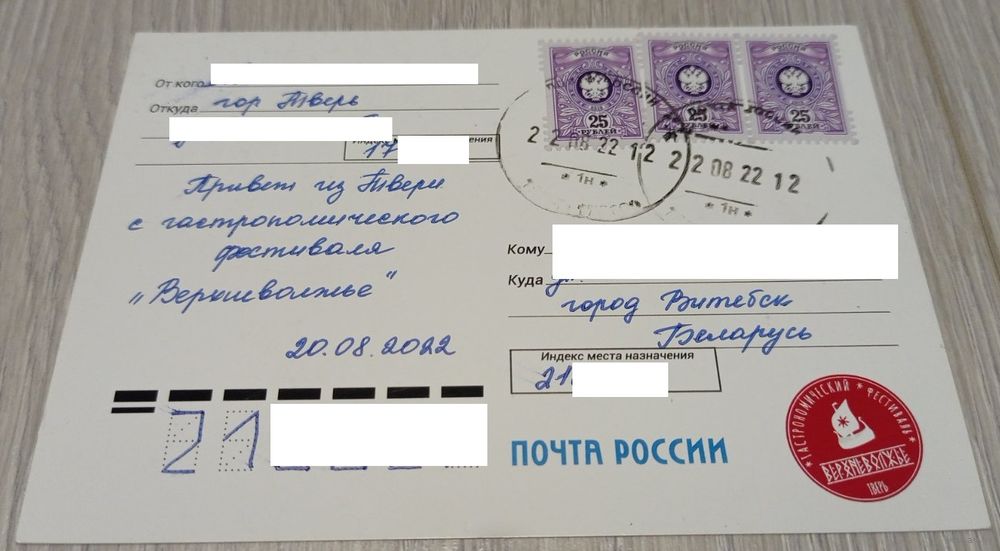 От кого
Откуда гор Тверь
17
Привет из Твери
с гастрономического
фестиваля
„Верхневолжье"
20.08.2022
РОССИЯ
25
РУБЛЕЙ
РОССИЯ
25
РУБЛЕЙ
РОССИЯ
25
РУБЛЕЙ
22 08 22 12
* 1н *
22 08 22 12
* 1н *
Кому
Куда
город Витебск
Беларусь
Индекс места назначения
21
21
ПОЧТА РОССИИ
ГАСТРОНОМИЧЕСКИЙ * ФЕСТИВАЛЬ
ВЕРХНЕВОЛЖЬЕ
ТВЕРЬ